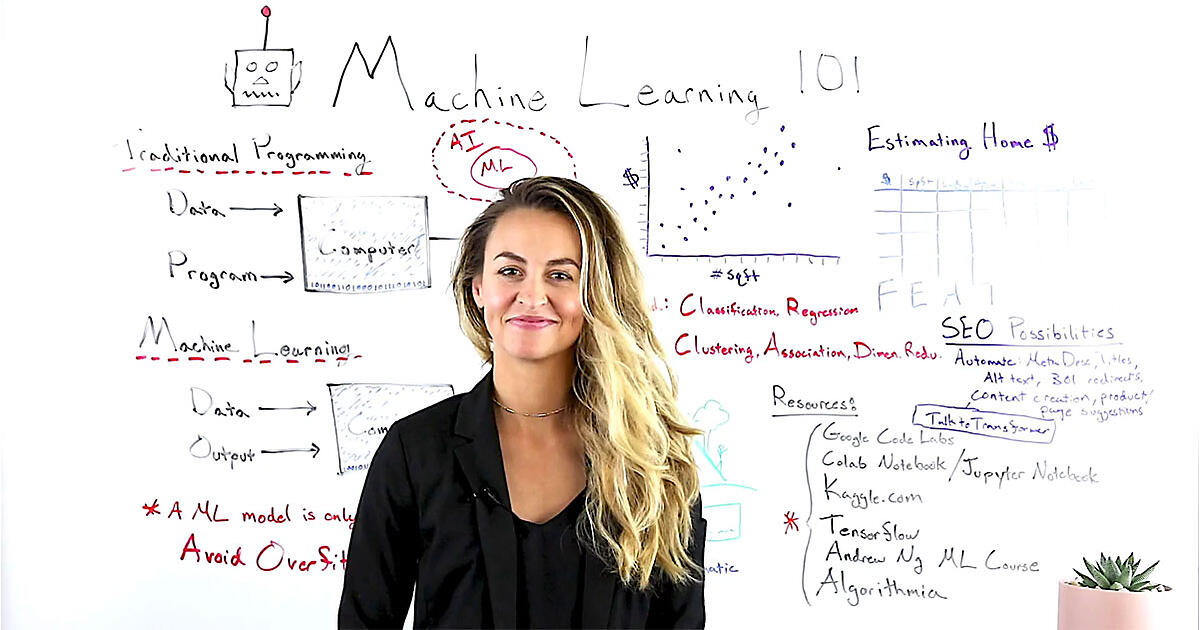 Machine Learning 101
Traditional Programming
Data
Program
Computer
AI
ML
$
# sqft
Estimating Home $
$ sqft
Machine Learning
Data
Output
Classification, Regression
Clustering, Association, Dimen. Redu.
* A ML model is only
Avoid Overfit
SEO Possibilities
Automate: Meta Desc, titles,
Alt text, 301 redirects,
content creation, product/
page suggestions
Talk to Transformer
Resources:
Google Code Labs
Colab Notebook/Jupyter Notebook
Kaggle.com
* Tensorflow
Andrew Ng ML Course
Algorithmia